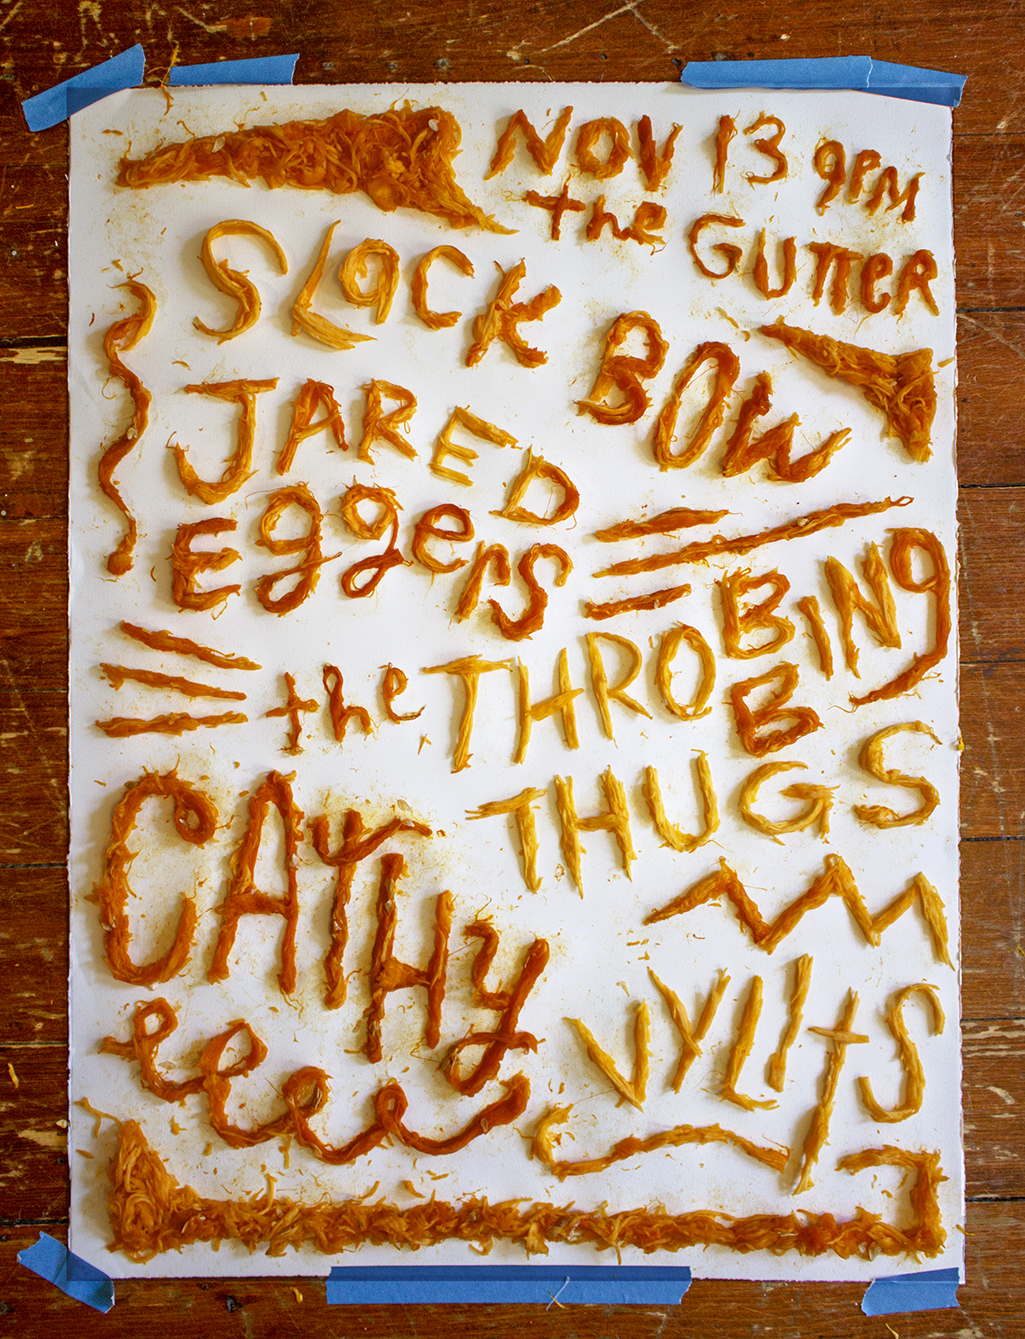 NOV 13 9PM
the GUTTER
SLaCK
BOW
JARED
Eggers
the THROBBINg
B
THUGS
CATHy
VYLITS